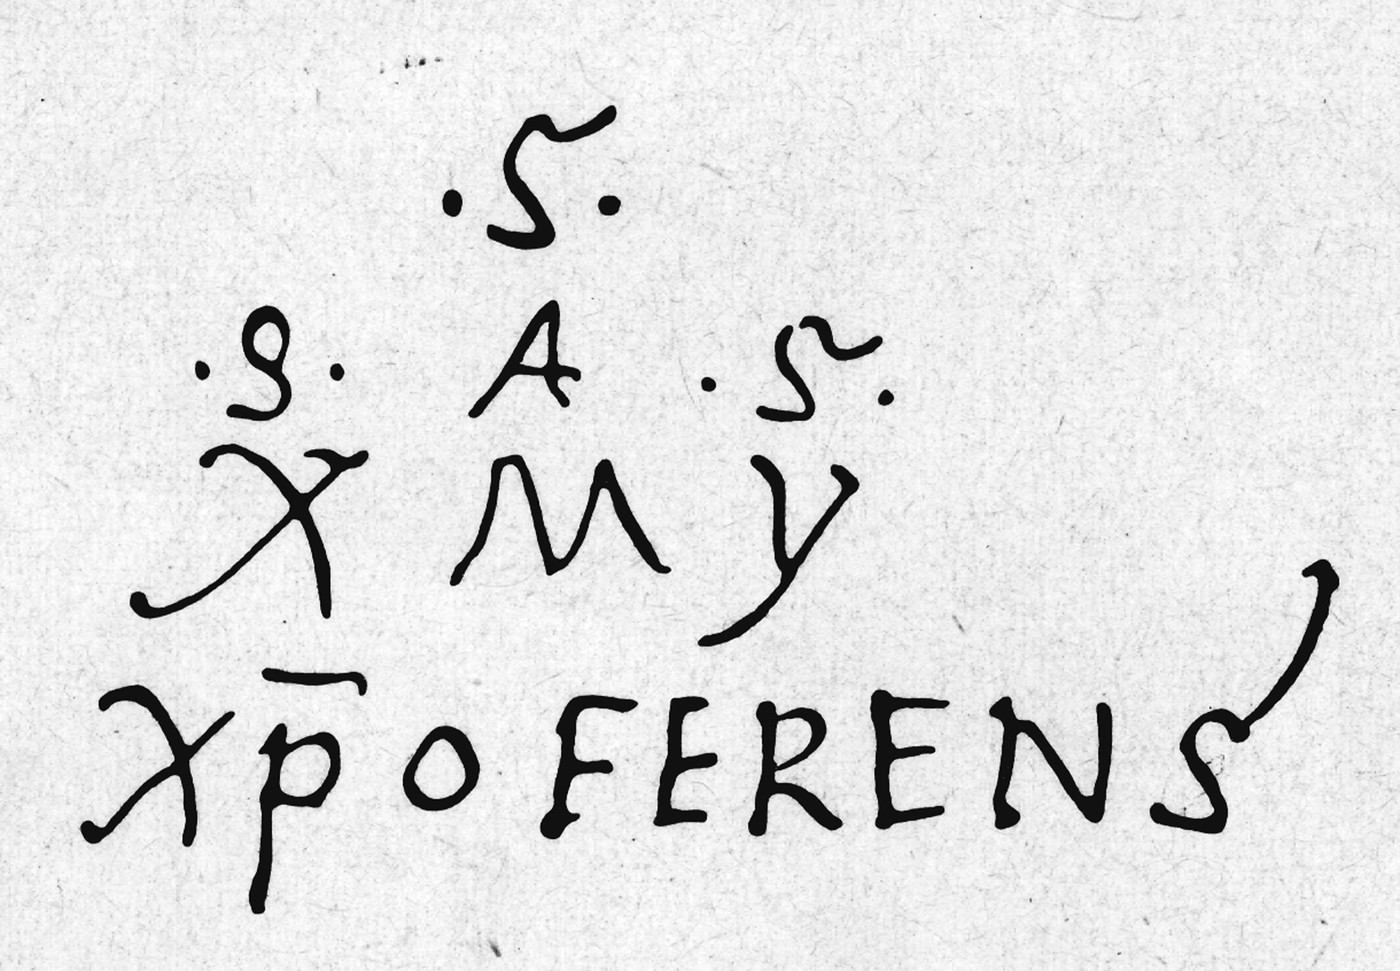 .S.
.S. A .S.
X M Y
Xp̅oFERENS